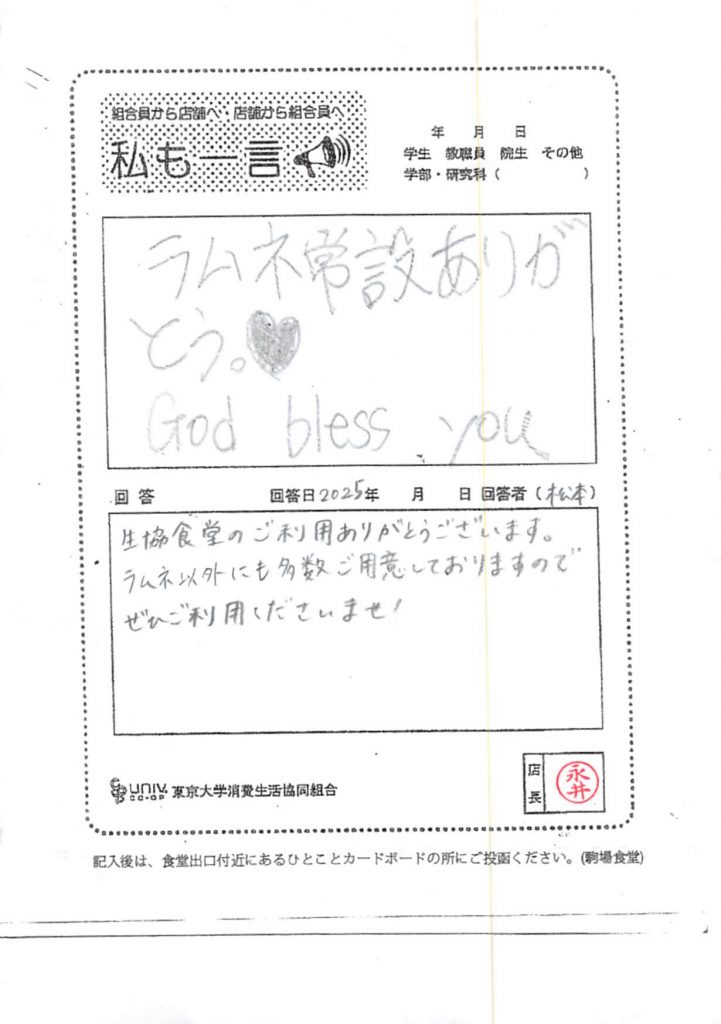 組合員から店舗へ・店舗から組合員へ
私も一言
年 月 日
学生 教職員 院生 その他
学部・研究科( )
ラムネ常設ありが
とう。♥
God bless you
回答 回答日2025年 月 日 回答者(松本)
生協食堂のご利用ありがとうございます。
ラムネ以外にも多数ご用意しておりますので
ぜひご利用くださいませ!
UNIV. CO-OP 東京大学消費生活協同組合
店長
永井
記入後は、食堂出口付近にあるひとことカードボードの所にご投函ください。(駒場食堂)